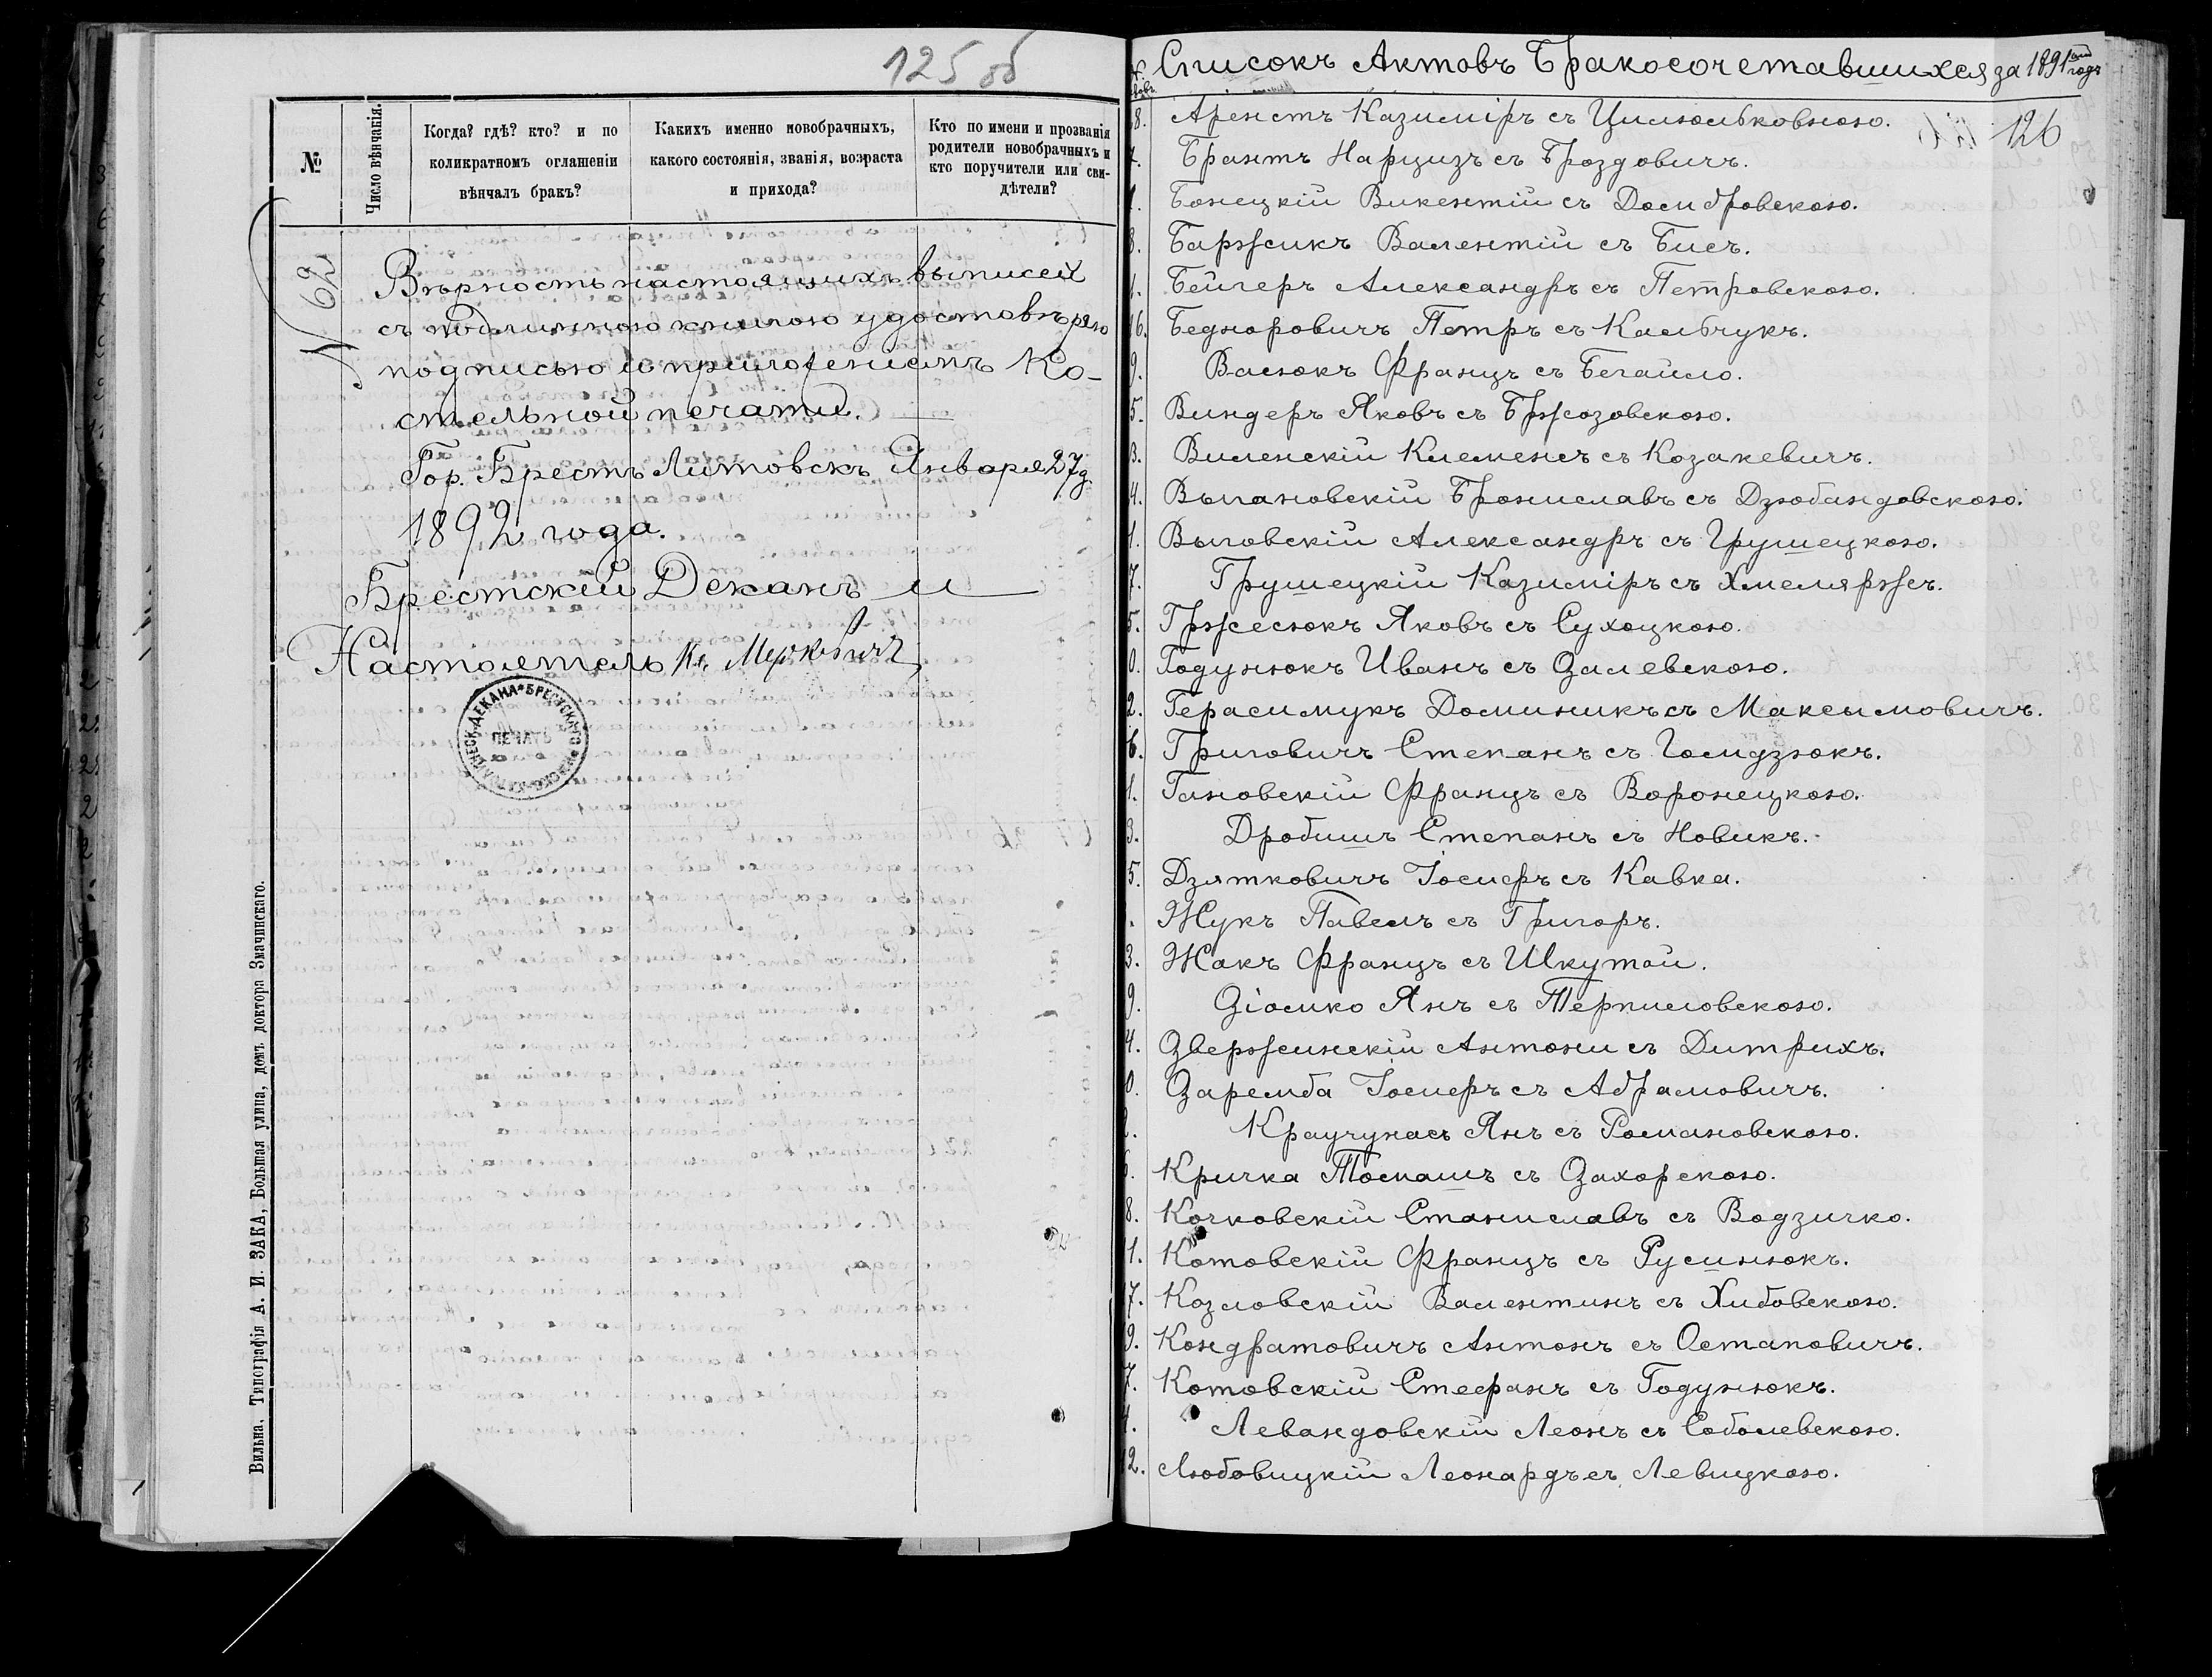 125 об
№
Число вѣнчанія.
Когда? гдѣ? кто? и по
коликратномъ оглашеніи
вѣнчалъ бракъ?
Какихъ именно новобрачныхъ,
какого состоянія, званія, возраста
и прихода?
Кто по имени и прозванія
родители новобрачныхъ и
кто поручители или сви-
дѣтели?
N 62
Вѣрность настоящихъ выписей
съ подлинною книгою удостовѣряю
подписью и приложеніемъ Ко-
стельной печати.
Гор. Брестъ Литовскъ Января 27 д.
1892 года.
Брестскій Деканъ и
Настоятель Кс. Меркевичъ
ДЕКАНА БРЕСТСКАГО
ПЕЧАТЬ
Вильна, Типографія А. И. ЗАКА, Большая улица, домъ доктора Змачинскаго.
Списокъ Актовъ Бракосочетавшихся за 1891 годъ
126
8. Арентъ Казиміръ съ
7. Брантъ Нарцизъ съ Броздовичъ.
1. Бонецкій Викентій съ Домбровскою.
8. Баржикъ Валентій съ Бисъ.
1. Бейгеръ Александръ съ Петровскою.
16. Беднаровичъ Петръ съ Камбчукъ.
9. Васюкъ Францъ съ Бегайло.
5. Виндеръ Яковъ съ Бржозовскою.
3. Виленскій Клеменсъ съ Козакевичъ.
4. Выгановскій Брониславъ съ Дзюбандовскою.
1. Выговскій Александръ съ Грушецкою.
7. Грушецкій Казиміръ съ Хмеляржъ.
5. Гржесюкъ Яковъ съ Сухоцкою.
0. Годунюкъ Иванъ съ Залевскою.
2. Герасимукъ Доминикъ съ Максымовичъ.
6. Григовичъ Степанъ съ Гомдзюкъ.
1. Гановскій Францъ съ Воронецкою.
3. Дробишъ Степанъ съ Новикъ.
5. Дзятковичъ Іосифъ съ Кавка.
Жукъ Павелъ съ Григоръ.
3. Жакъ Францъ съ Шкутой.
9. Зіомко Янъ съ Терпиловскою.
4. Звержинскій Антони съ Дитрихъ.
0. Заремба Іосифъ съ Абрамовичъ.
Краучунасъ Янъ съ Романовскою.
Кричка Томашъ съ Захорскою.
8. Кочковскій Станиславъ съ Водзичко.
1. Котовскій Францъ съ Русинюкъ.
7. Козловскій Валентинъ съ Хибовскою.
9. Кондратовичъ Антонъ съ Остаповичъ.
7. Котовскій Стефанъ съ Годунюкъ.
Левандовскій Леонъ съ Соболевскою.
12. Любовицкій Леонардъ съ Левицкою.